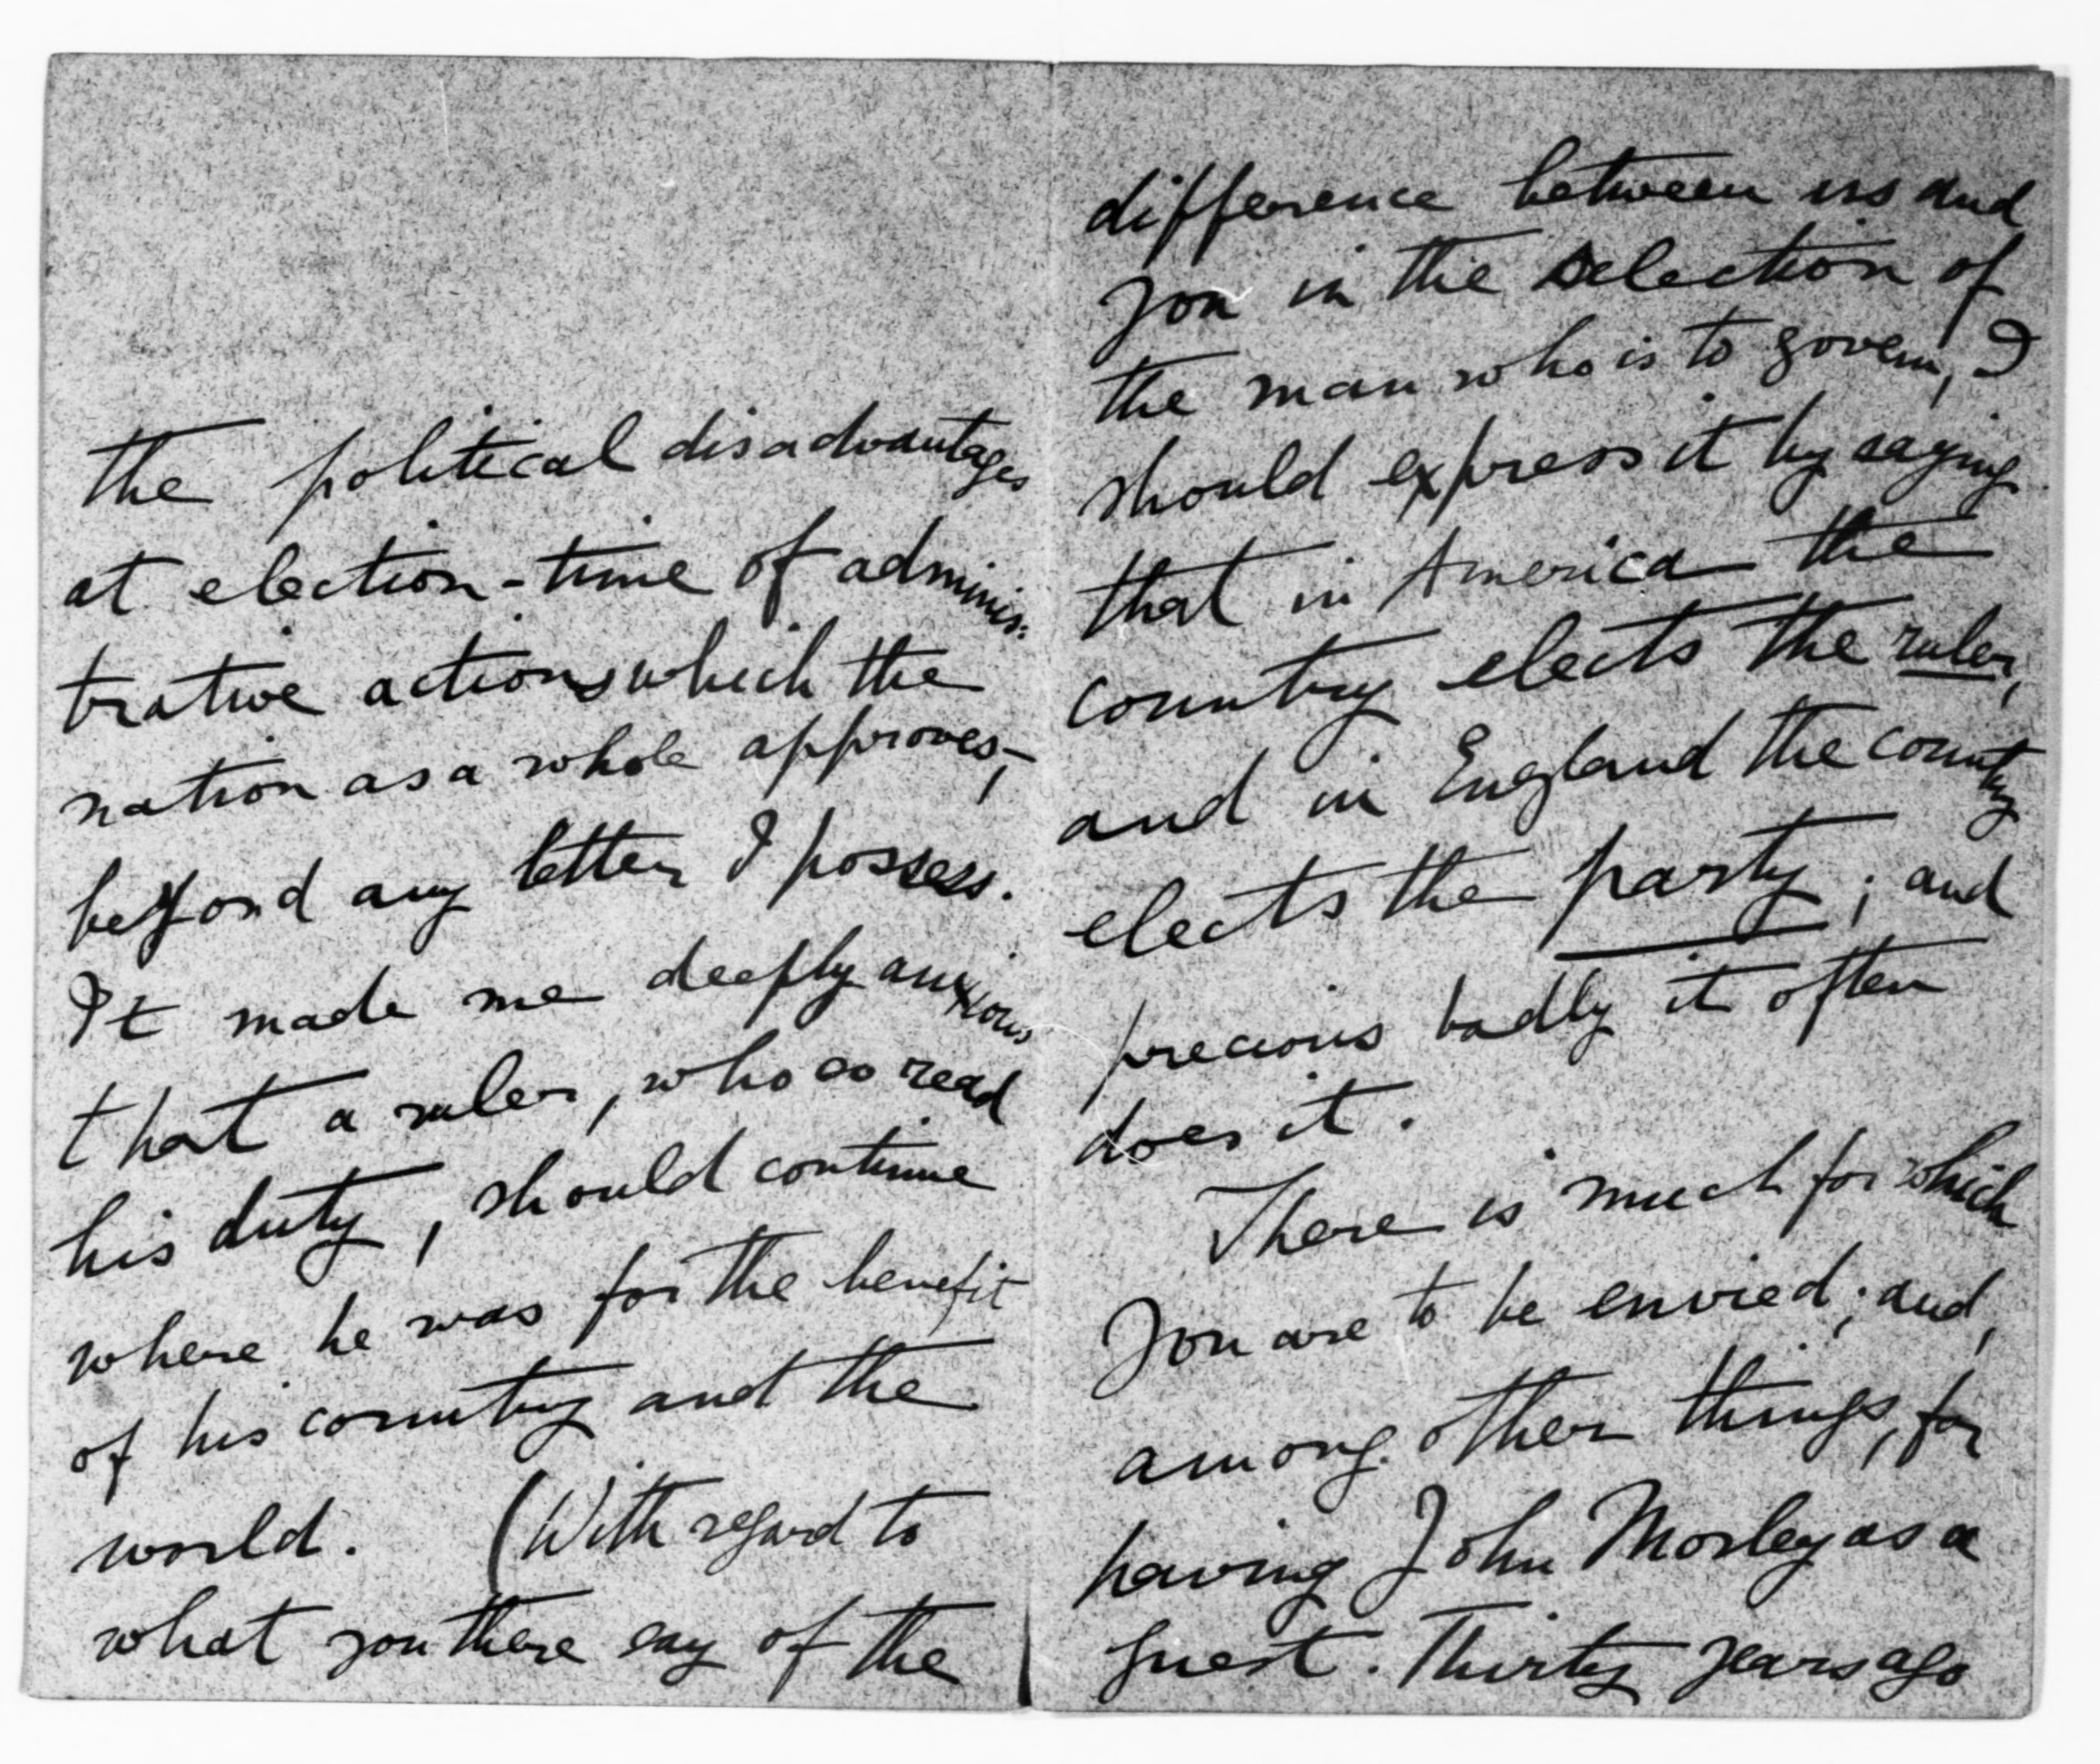 the political disadvantages
at election-time of adminis:
trative actions which the
nation as a whole approves,—
beyond any letter I possess.
It made me deeply anxious
that a ruler, who so read
his duty, should continue
where he was for the benefit
of his country and the
world. (With regard to
what you there say of the
difference between us and
you in the selection of
the man who is to govern, I
should express it by saying
that in America the
country elects the ruler,
and in England the country
elects the party; and
precious badly it often
does it.
There is much for which
you are to be envied; and,
among other things, for
having John Morley as a
guest. Thirty years ago